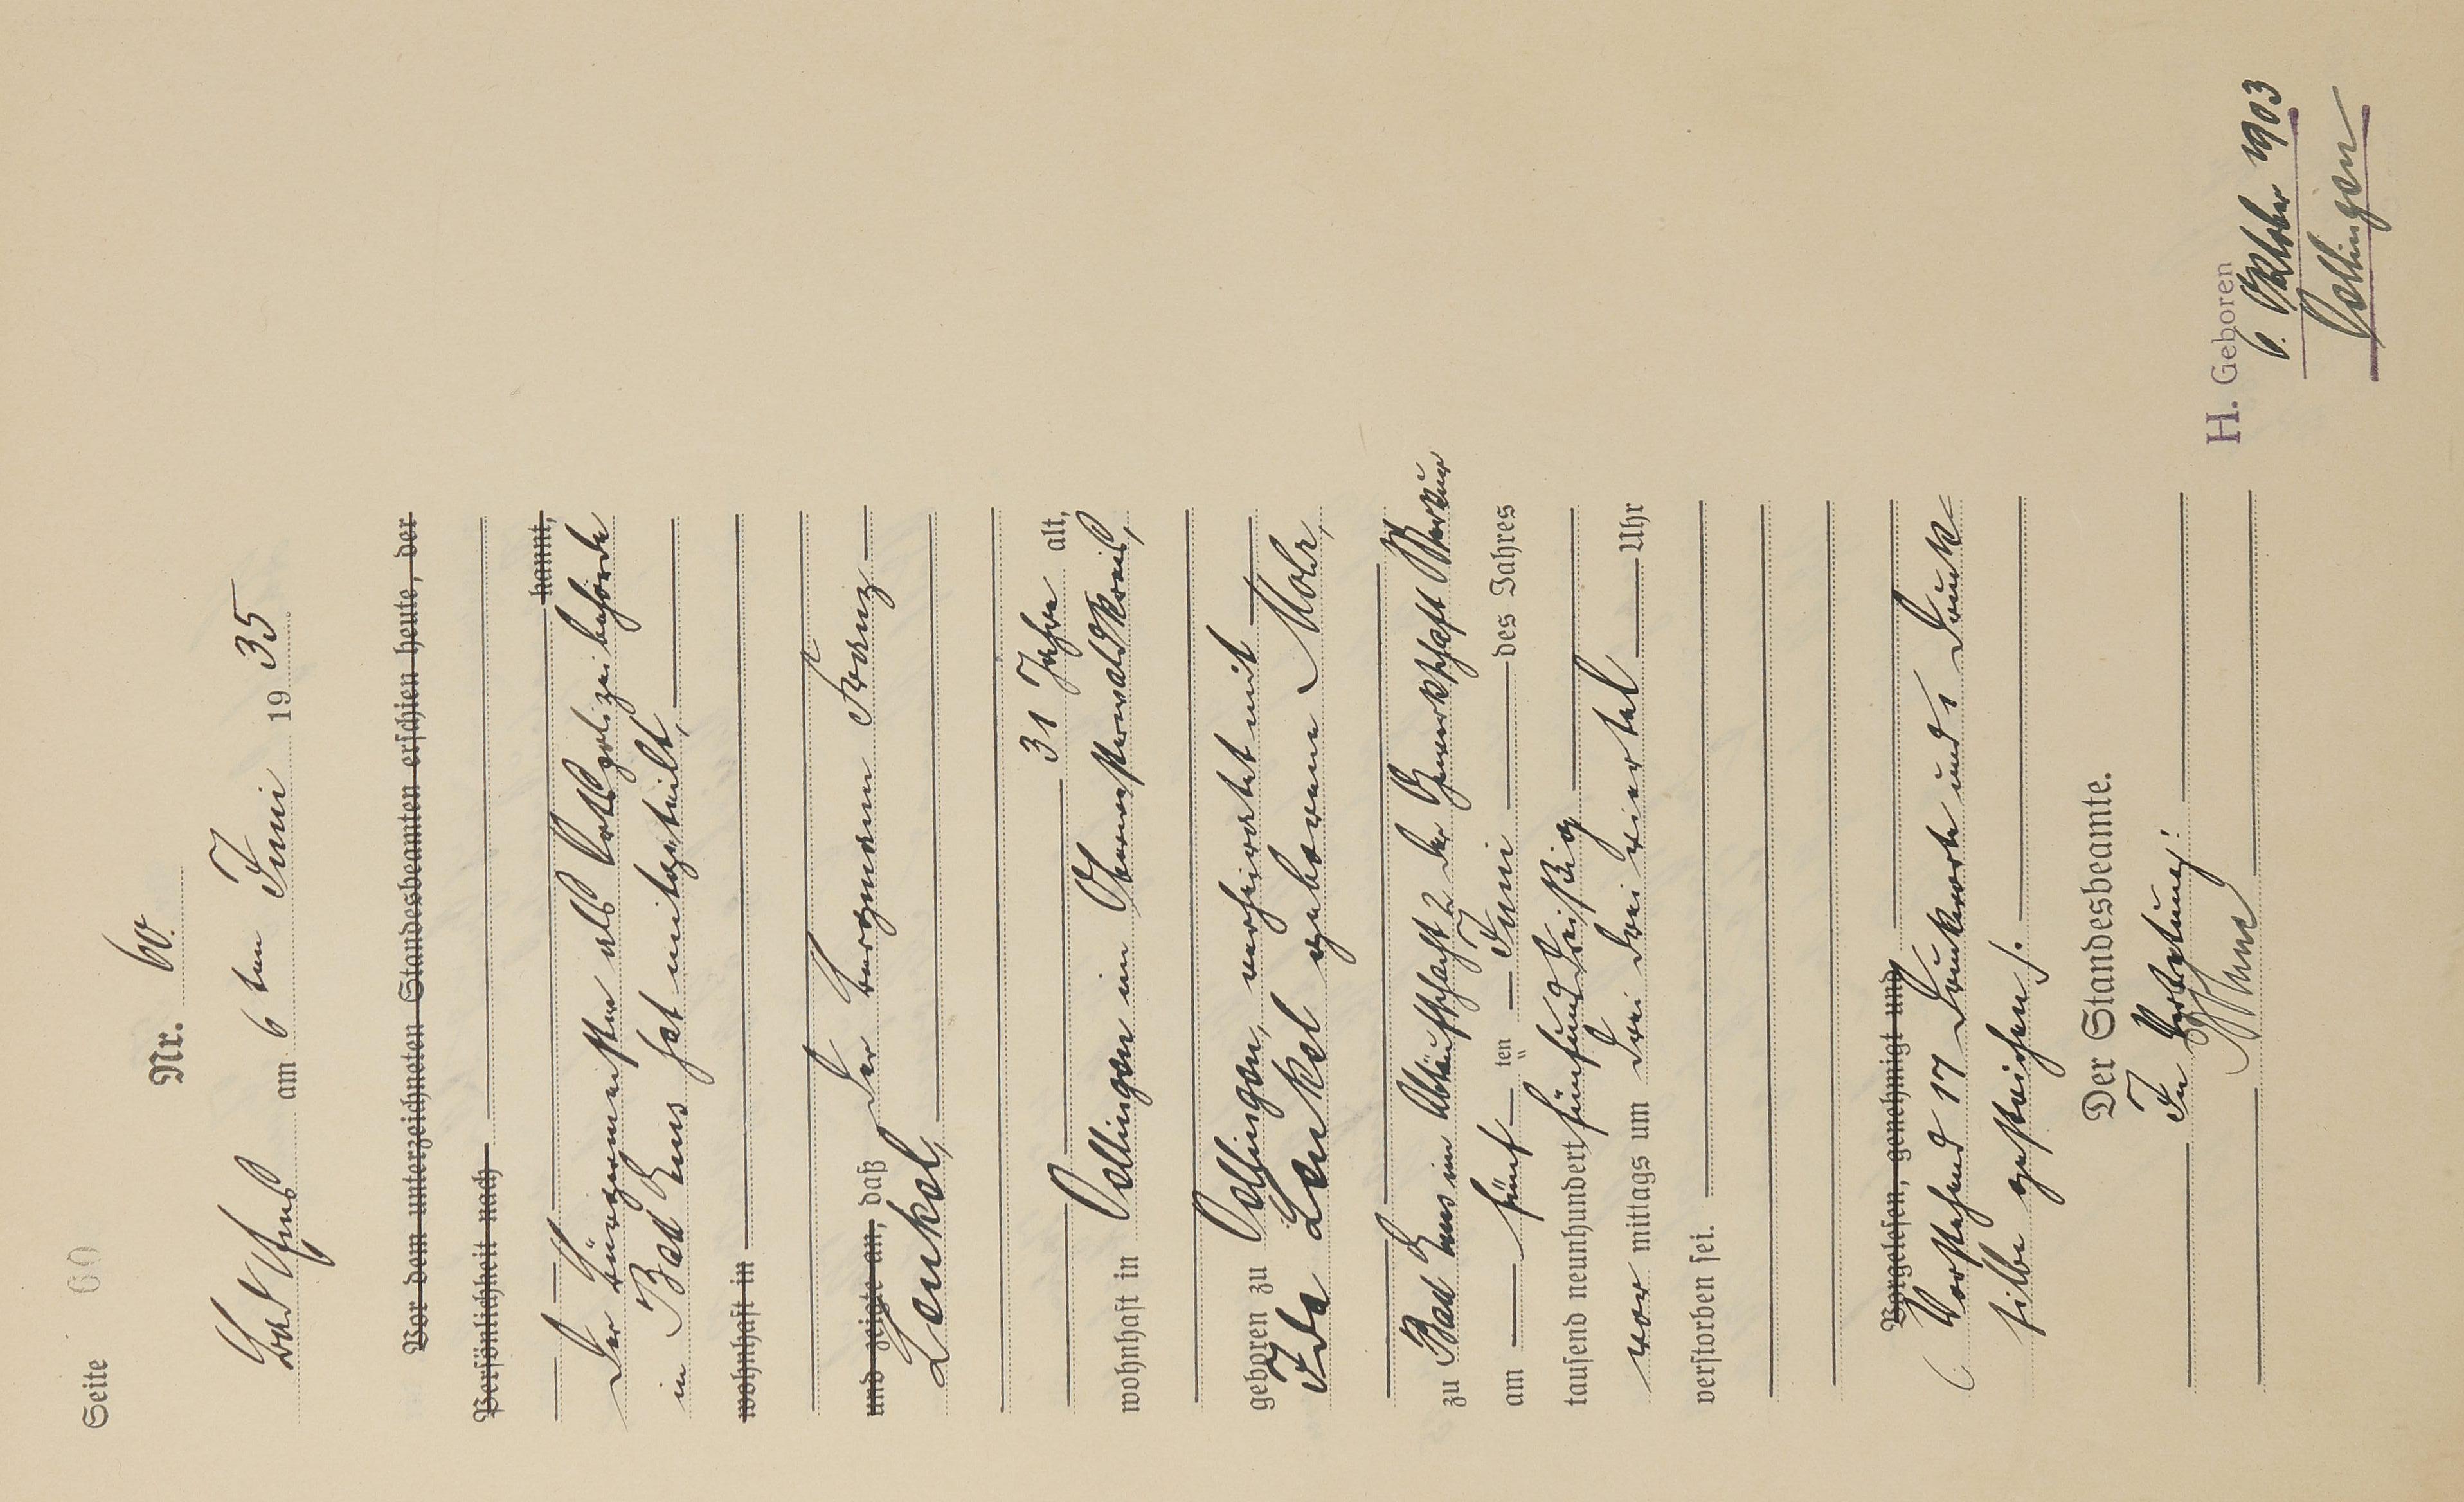 Seite 60
Nr. 60.
Bad Ems am 6ten Juni 1935
Vor dem unterzeichneten Standesbeamten erschien heute, der
Persönlichkeit nach
kannt,
Der Bürgermeister als Ortspolizeibehörde
in Bad Ems hat mitgeteilt,
wohnhaft in
und zeigte an, daß der Bergmann Franz
Lenkel,
31 Jahre alt,
wohnhaft in Dellingen im Oberwesterwaldkreis,
geboren zu Dellingen, verheiratet mit
Ida Lenkel geborene Mohr,
zu Bad Ems im Abteufschacht 2 der Gewerkschaft Merkur
am fünften Juni des Jahres
tausend neunhundert fünfunddreißig
vor mittags um drei dreiviertel Uhr
verstorben sei.
Vorgelesen, genehmigt und
(Vorstehend 17 Druckworte und 1 Druck=
silbe gestrichen).
Der Standesbeamte.
In Vertretung:
H. Geboren
6. Oktober 1903
Dellingen